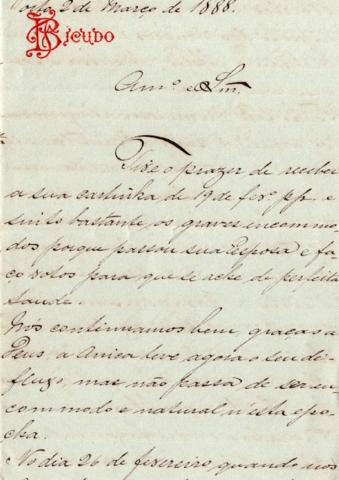 2 de Março de 1888.
BICUDO
Am.º e Sn.r
Tive o prazer de receber
a sua cartinha de 19 de fer.º pp. e
sinto bastante os graves incommo
dos porque passou sua Esposa e fa
ço votos para que se ache de perfeita
saude.
Nós continuamos bem, graças a
Deus, a Anica teve agora o seu de
fluxo, mas não passa de ser in
commodo e natural n'esta epo
cha.
No dia 26 de fevereiro, quando nos